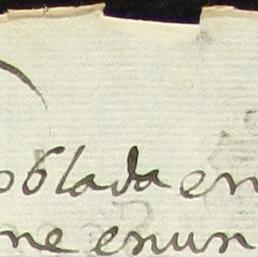 oblada en
ne enun